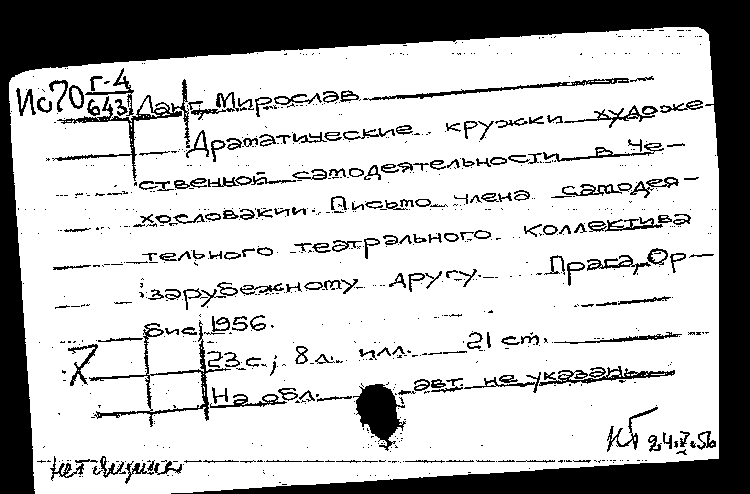 Ис70 Г-4
643
Ланг, Мирослав
Драматические кружки художе-
ственной самодеятельности в Че-
хословакии. Письмо члена самодея-
тельного театрального коллектива
зарубежному другу. Прага, Ор-
бис, 1956.
23 с.; 8 л. илл. 21 ст.
На обл. авт. не указан.
X
24.V.56
нет